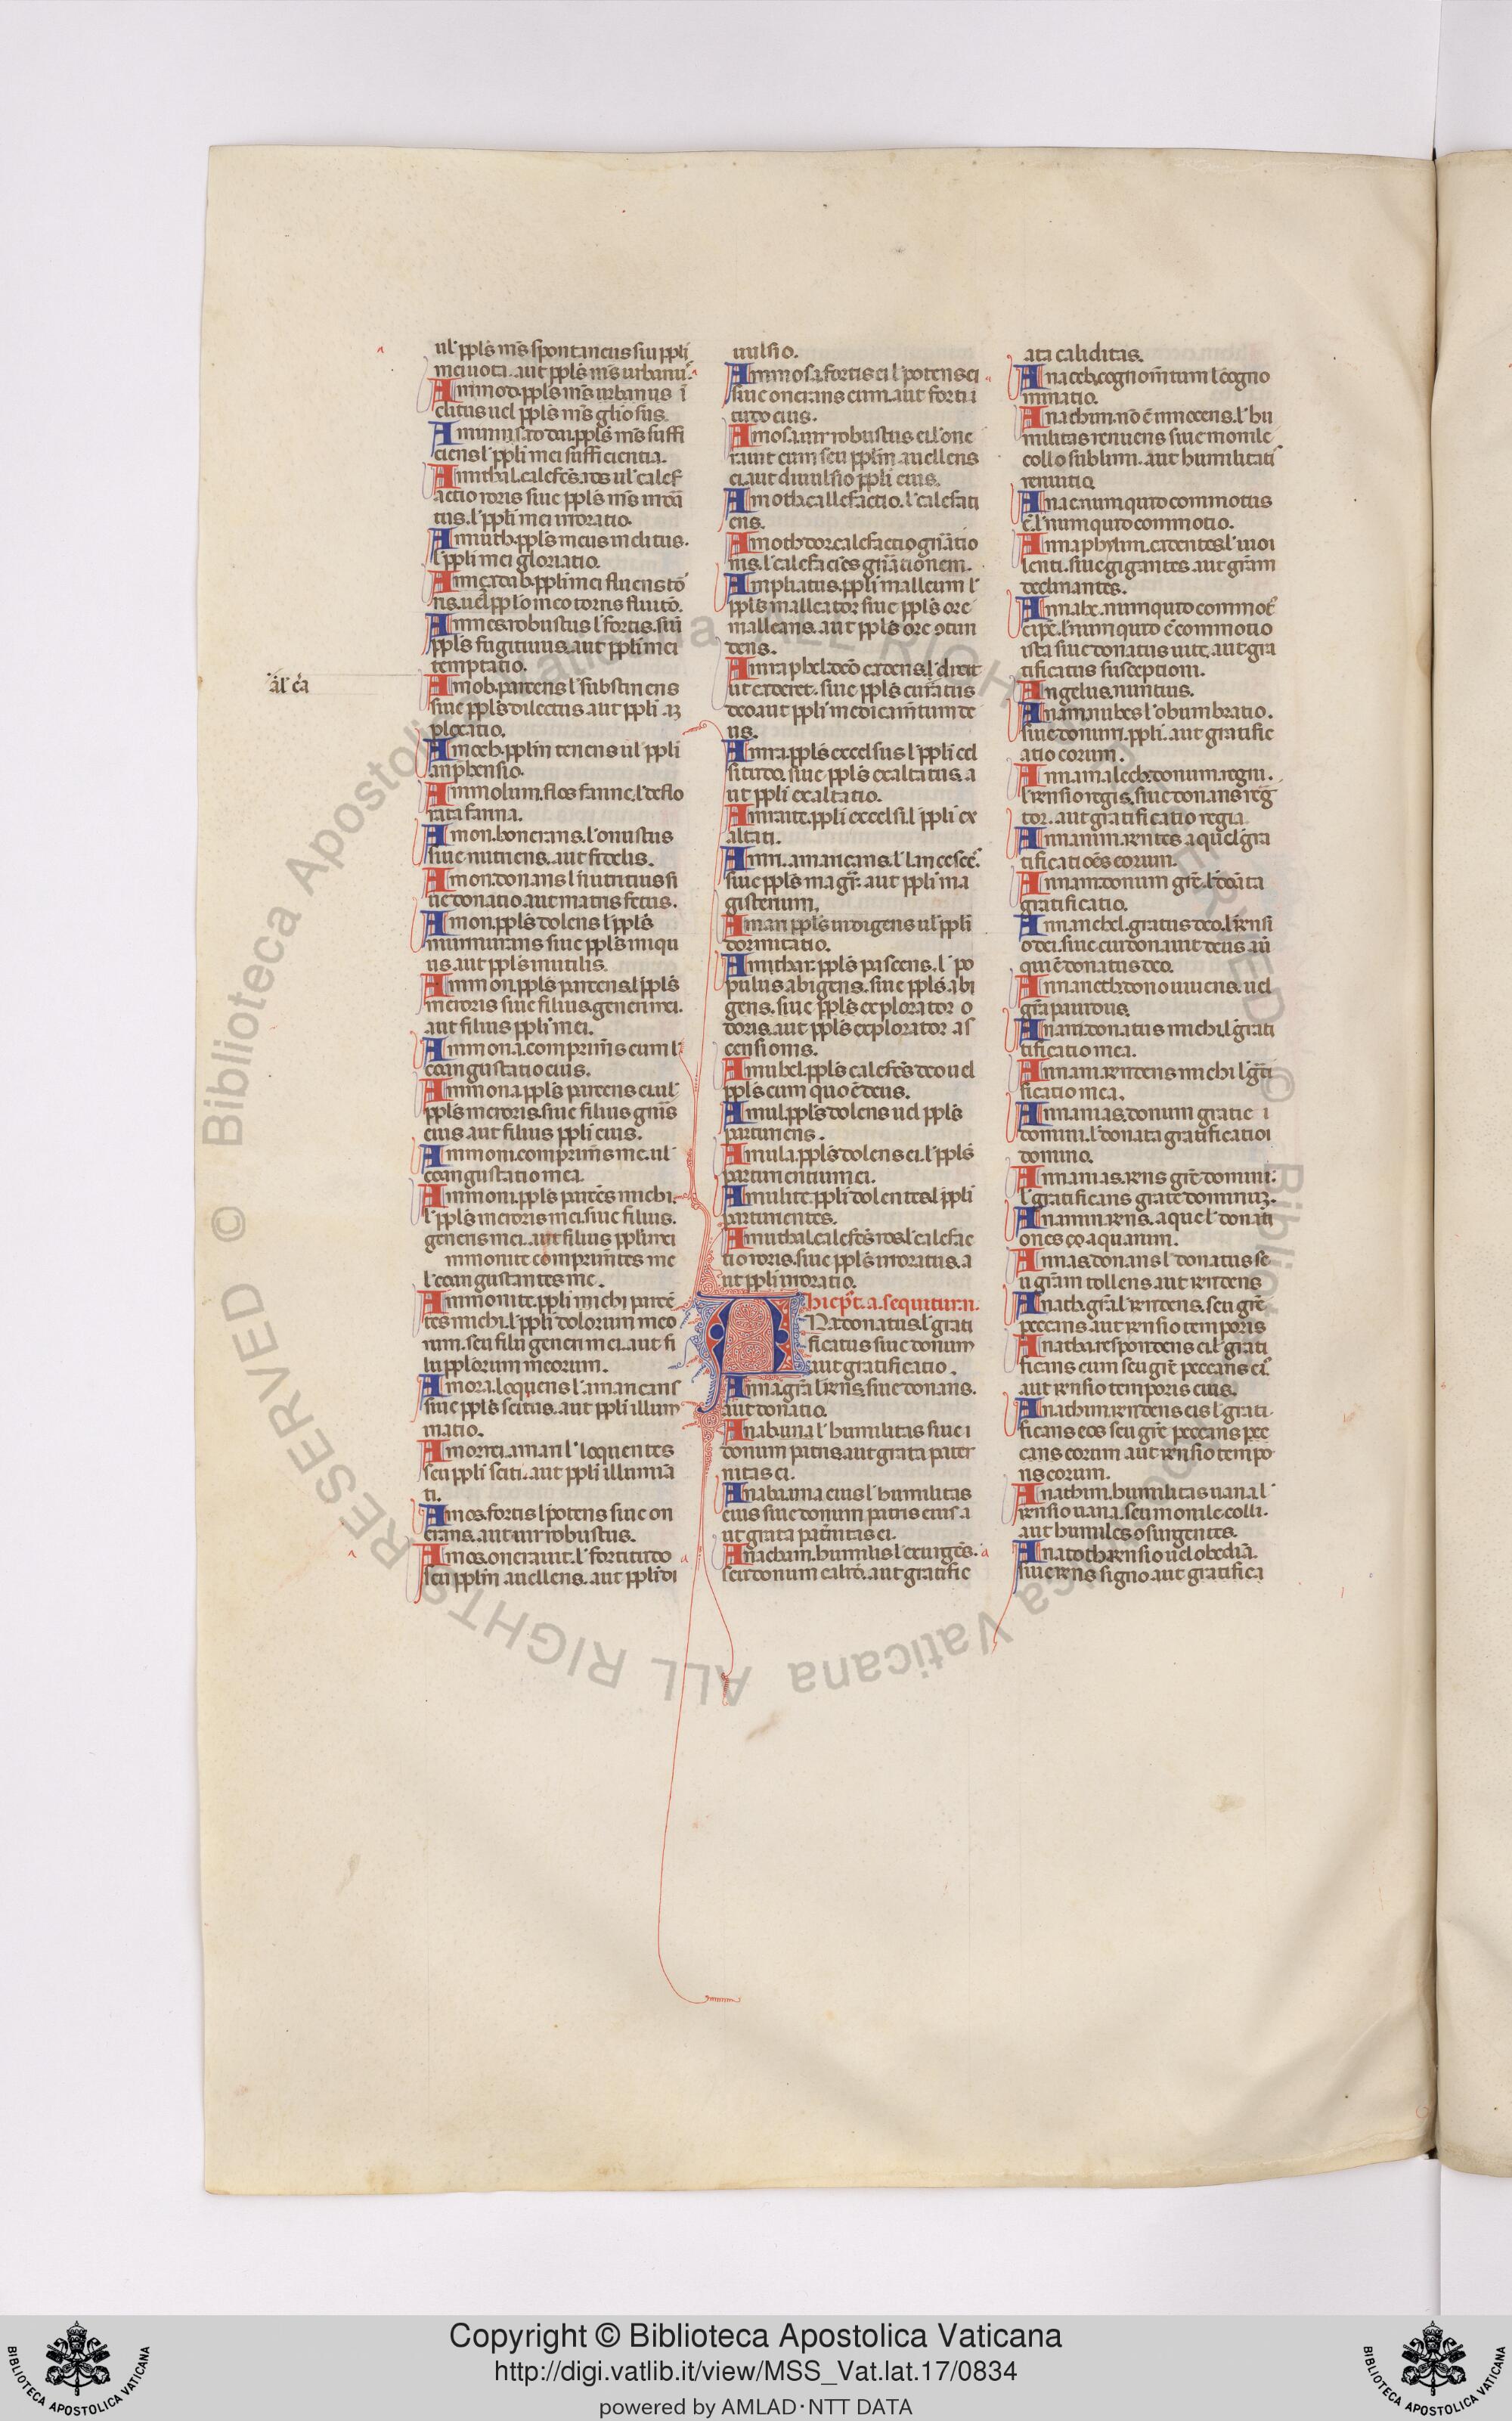 ul' ppl's m̄s spontaneus siu ppli
mei uota. aut ppl's m̄s urbanu'.
Amiuod. ppl's m̄s urbanus. i
clitus uel ppl's m̄s gl'iosus.
ciens l' ppli mei sufficientia.
Amithal. calefc̄s. ros ul' calef
actio roris siue ppl's m̄s
tus. l' ppli mei
Amiuth. ppl's meus inclitus.
l' ppli mei gloriatio.
ppli mei fluens
Amics. robustus l' fortis. siu
ppl's fugitiuus. aut ppli mei
temptatio.
al' c̄a
Amob. parcens l' substinens
siue ppl's dilectus. aut ppli
Amoeb. ppl'm tenens ul' ppli
Ammolum. flos fanne. l' deflo
rata fanna.
Amon. honerans. l' onustus
siue nutriens. aut fidelis.
Amon. donans l' nutritius si
ue donatio. aut matris fetus.
Amon. ppl's dolens l' ppl's
murmurans siue ppl's iniqu
us. aut ppl's inutilis.
Ammon. ppl's parcens. l' ppl's
meroris siue filius. generi mei.
aut filius ppli mei.
Ammona. comprim̄s eum l'
coangustatio eius.
Ammona. ppl's parcens ei. ul'
ppl's meroris. siue filius gn̄is
eius. aut filius ppli eius.
Ammoni. comprim̄s me. ul'
coangustatio mea.
Ammoni. ppl's parc̄s michi.
l' ppl's meroris mei. siue filius.
generis mei. aut filius ppli mei
mmonite comprim̄tes me
l' coangustantes me.
Ammonite. ppli michi parcē
tes michi. l' ppli dolorum meo
rum. seu filii generi mei. aut fi
lii ppl'orum meorum.
Amora. loquens l' amaricans
siue ppl's scitus. aut ppli illumi
natio.
Amorrei. amari l' loquentes
seu ppli sciti. aut ppli illumīa
ti.
Amos. fortis l' potens siue on
erans. aut uir robustus.
Amos. onerauit. l' fortitudo
seu ppl'm auellens. aut ppli di
uulsio.
Ammosa. fortis ei l' potens ei
siue onerans eum. aut forti
tudo eius.
Amosa. uir robustus ei. l' one
rauit eum seu ppl'm auellens
ei. aut diuulsio ppli eius.
Amoth. callefactio. l' calefaci
ens.
Amothdor. calefactio gn̄atio
nis. l' calefaciēs gn̄ationem.
Ampliatus. ppli malleum l'
ppl's malleator siue ppl's ore
malleans. aut ppl's ore 9tun
dens.
Amraphel. deo cadens. l' dixit
ut caderet. siue ppl's curatus
deo. aut ppli medicam̄tum de
us.
Amra. ppl's excelsus l' ppli cel
situdo. siue ppl's exaltatus. a
ut ppli exaltatio.
Amrate. ppli excelsi. l' ppli ex
altati.
siue ppl's magr̄. aut ppli ma
gisterium.
Amari ppl's indigens ul' ppli
dormitatio.
Amithar. ppl's pascens. l' po
pulus abigens. siue ppl's abi
gens. siue ppl's explorator o
doris. aut ppl's explorator as
censionis.
Amuhel. ppl's calefc̄s deo uel
ppl's cum quo ē deus.
Amul. ppl's dolens uel ppl's
parturiens.
Amula. ppl's dolens ei. l' ppl's
parturientium ei.
Amulite. ppli dolentes l' ppli
parturientes.
Amuthal. calefc̄s ros l' calefac
tio roris. siue ppl's inroratus. a
ut ppli inroratio.
hic p̄t. a. sequitur. n.
Na. donatus. l' grati
ficatus siue donum
aut gratificatio.
Anna. gr̄a l' rn̄s. siue donans.
aut donatio.
Anabuna l' humilitas siue i
donum patris. aut grata pater
nitas ei.
Anaba. una eius l' humilitas
eius siue donum patris eius a
ut grata patn̄itas ei.
Anacham. humilis l' exurgēs.
seu donum calid. aut gratific
ata caliditas.
Anaceb. cognom̄tum l' cogno
minatio.
Anachim. nō ē innocens. l' hu
militas renuens siue monile
collo sublimi. aut humilitati
renuitio.
Anac. numquid commotus
ē. l' numquid commotio.
Annaphylim. cadentes. l' uioi
lenti. siue gigantes. aut gr̄am
declinantes.
Annabe. numquid commot'
l' numquid ē commotio
ista siue donatus uite. aut gra
tificatus susceptioni.
Angelus. nuntius.
Anam. nubes l' obumbratio.
siue donum. ppli. aut gratific
atio eorum.
Annamalech. donum. regni.
l' rensio regis. siue donans reg
tor. aut gratificatio regia.
Annamim. rn̄dtes. aque l' gra
tificatiōes eorum.
Annam. donum gr̄e. l' donata
gratificatio.
Annanehel. gratus deo. l' rensi
o dei. siue cui donauit deus. au
qui ē donatus deo.
Annaneth. dono uiuens. uel
gr̄a pauidus.
Anani. donatus michi. l' grati
tificatio mea.
Annani. rn̄dens michi l' grati
ficatio mea.
Annanias. donum gratie i
domini. l' donata gratificatioi
domino.
Annanias. rn̄s gr̄e domini.
l' gratificans grate dominū.
Anamim. rn̄s. aque l' donati
ones eo aquarum.
Annas. donans l' donatus se
u gr̄am tollens. aut rn̄dens
Anath. gr̄a l' rn̄dens. seu gr̄e
peccans. aut rensio temporis
Anatha. respondens ei. l' grati
ficans eum seu gr̄e peccans ei'.
aut rensio temporis eius.
Anathim. rn̄dens eis l' grati
ficans eos seu gr̄e peccans pec
cans eorum aut rensio tempo
ris eorum.
Anathim. humilitas uana l'
rensio uana. seu monile. colli.
aut humiles 9surgentes.
Anatoth. rensio uel obedia.
siue rens signo aut gratifica
Copyright © Biblioteca Apostolica Vaticana
http://digi.vatlib.it/view/MSS_Vat.lat.17/0834
powered by AMLAD·NTT DATA
BIBLIOTECA APOSTOLICA VATICANA
BIBLIOTECA APOSTOLICA VATICANA
© Biblioteca Apostolica Vaticana ALL RIGHTS RESERVED